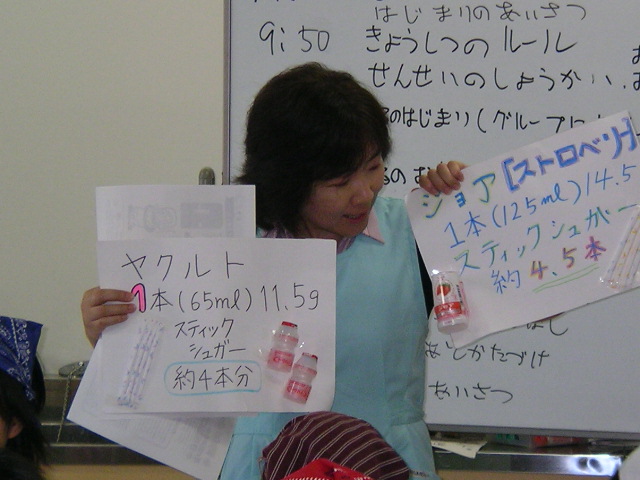 はじまりのあいさつ
9:50 きょうしつのルール
せんせいのしょうかい、
のはじまり(グループに
ヤクルト
1本(65ml)11.5g
スティック
シュガー
約4本分
ジョア[ストロベリー]
1本(125ml)14.5
スティックシュガー
約4.5本
あとかたづけ
あいさつ